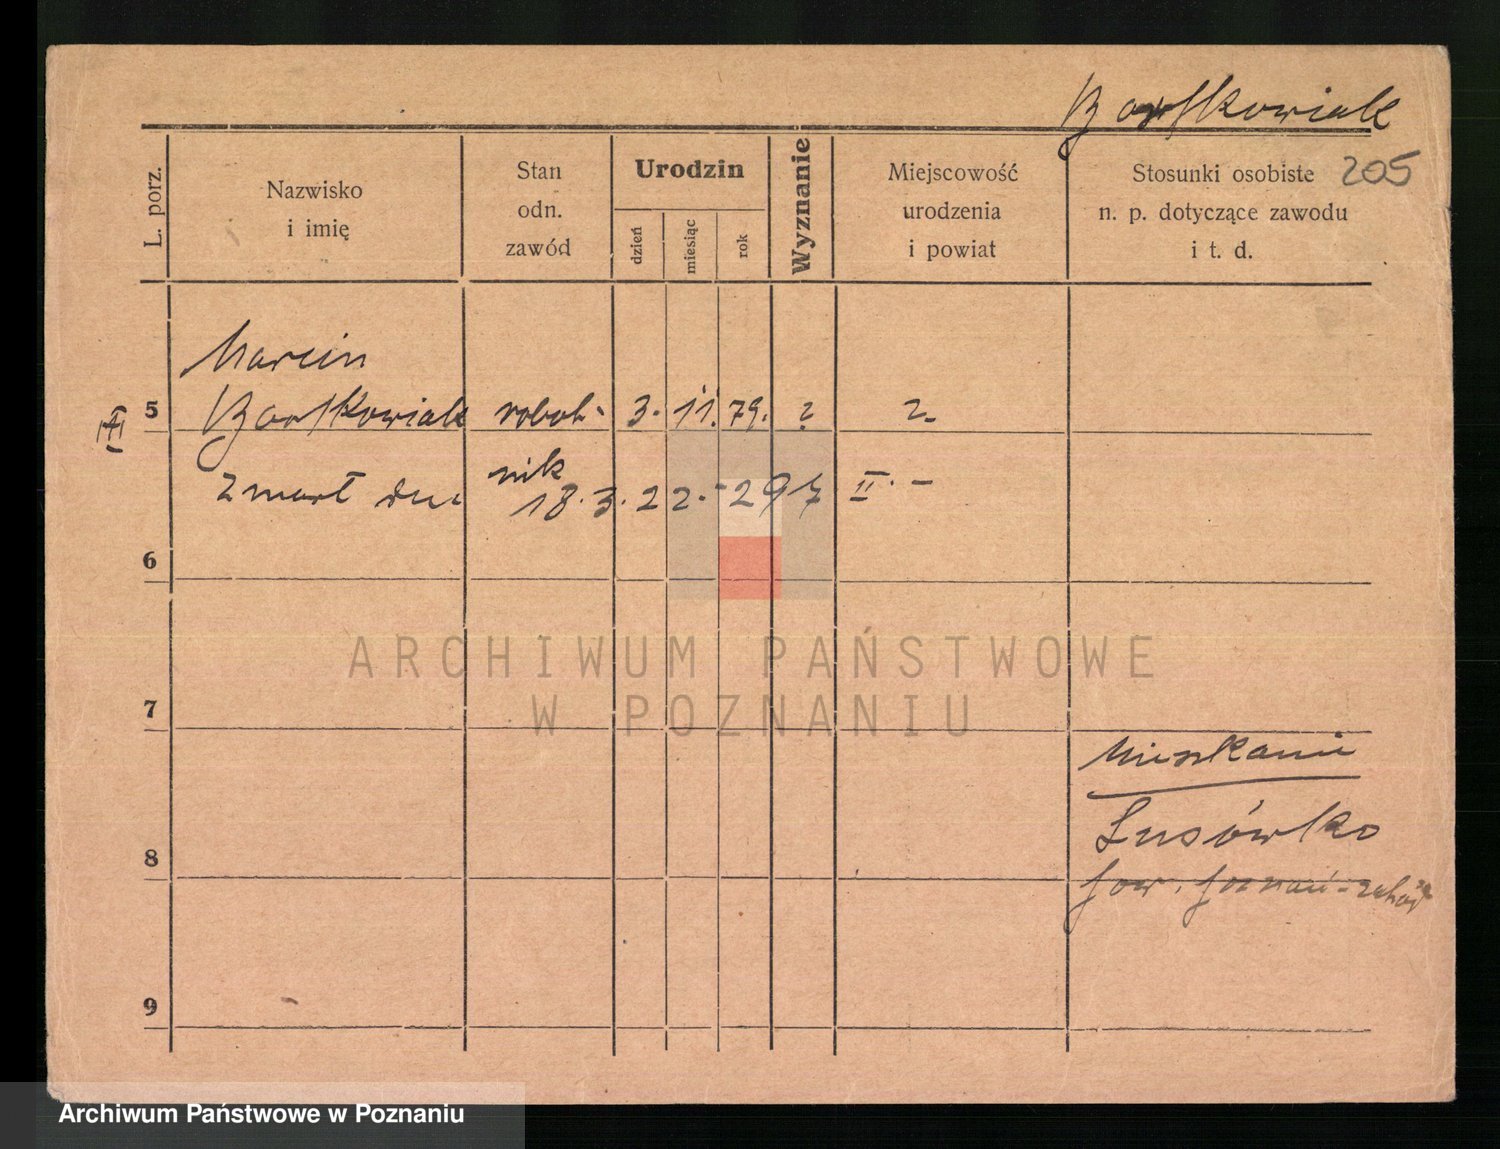 Bartkowiak
205
L. porz.
Nazwisko
i imię
Stan
odn.
zawód
Urodzin
dzień
miesiąc
rok
Wyznanie
Miejscowość
urodzenia
i powiat
Stosunki osobiste
n. p. dotyczące zawodu
i t. d.
Marcin
5 Bartkowiak robot- 3. 11. 79. ? ?
nik
zmarł dnia 18.3.22.- 297 II.-
6
7
8
9
Mieszkanie
Lusówko
pow. Poznań-zach.
ARCHIWUM PAŃSTWOWE
W POZNANIU
Archiwum Państwowe w Poznaniu